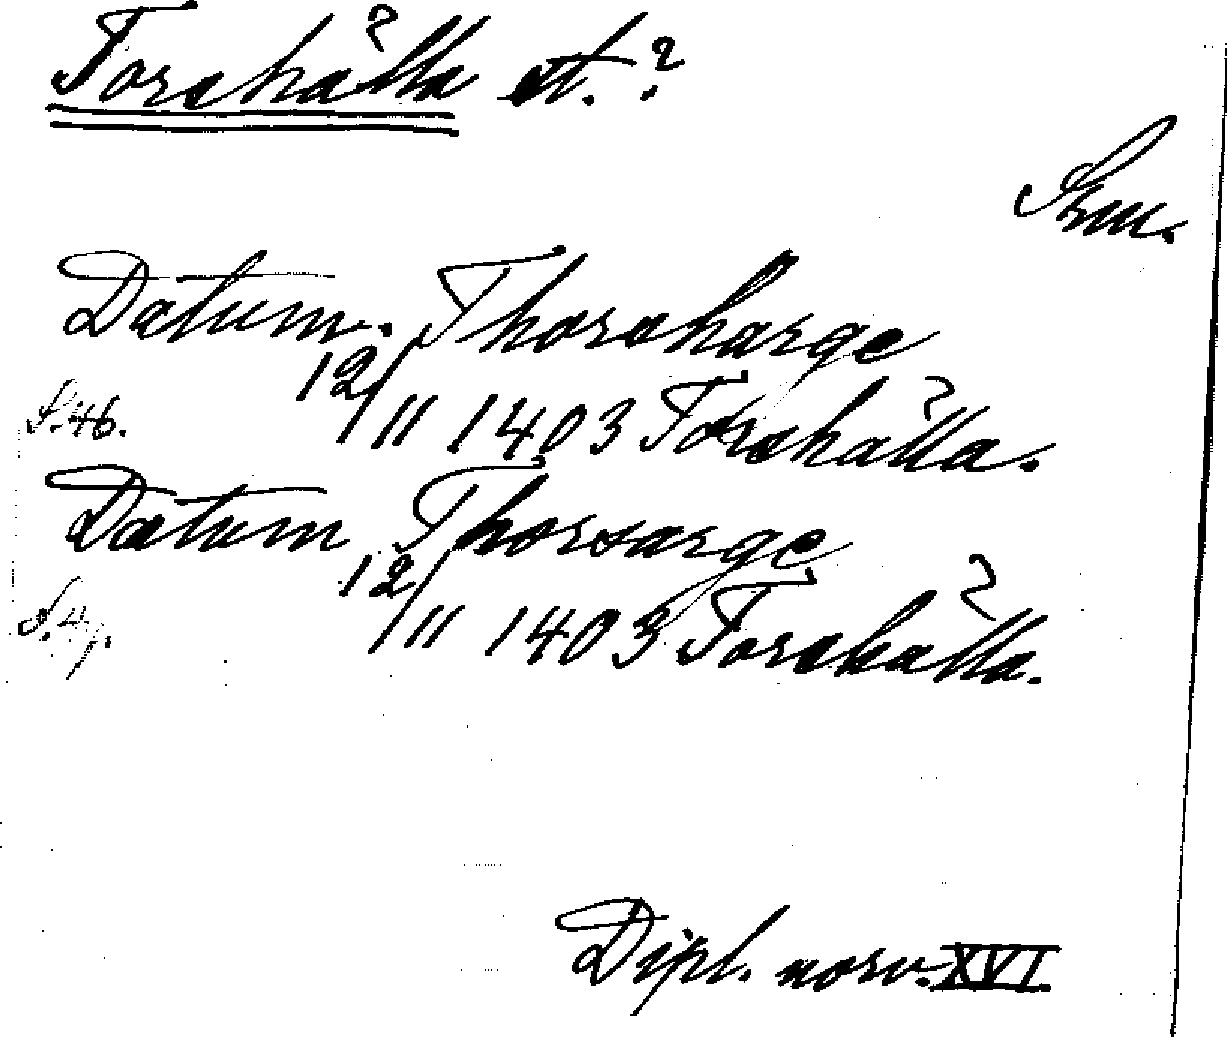 Torshälla st.?
Srm.
Datum. Thorsharge
12/11 1403 Torshälla.
S. 46.
Datum Thorsarge
12/11 1403 Torshälla.
S. 47.
Dipl. norv. XVI.